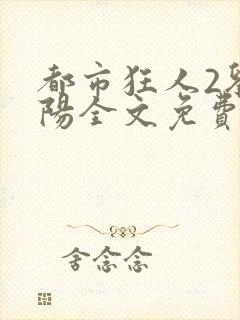 都市狂人2
陽全文免費
舍念念